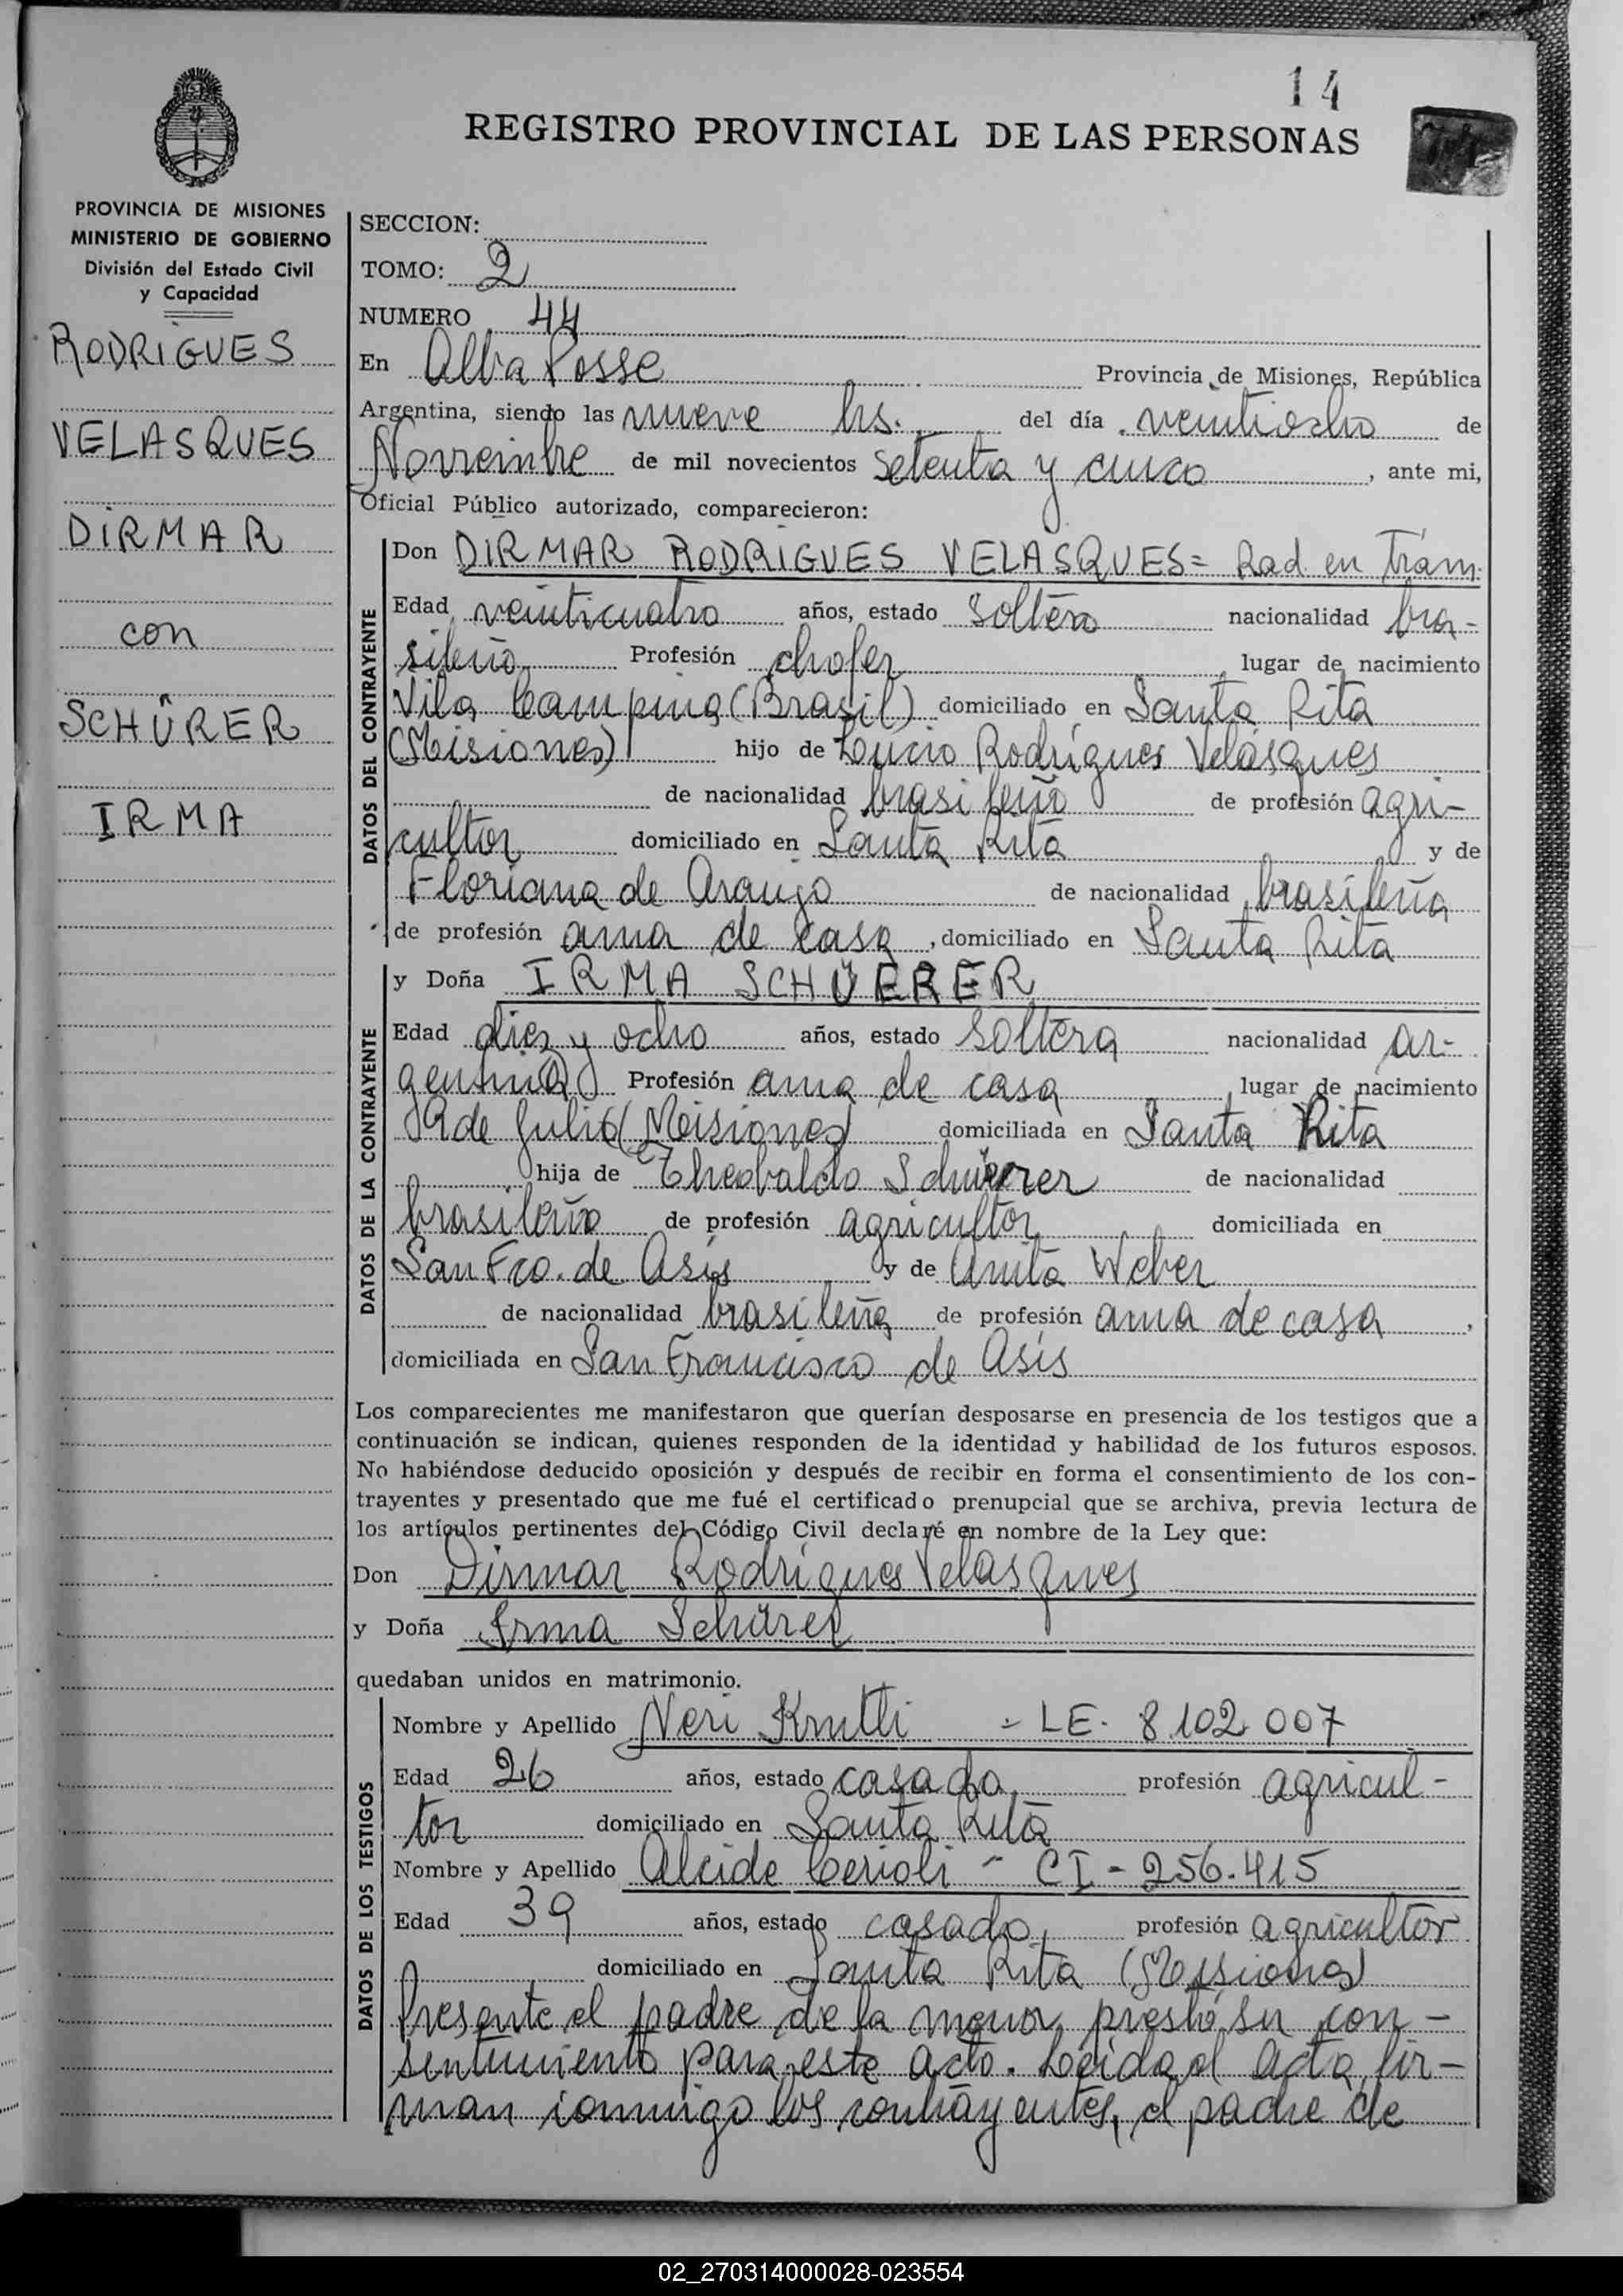 14
REGISTRO PROVINCIAL DE LAS PERSONAS
PROVINCIA DE MISIONES
MINISTERIO DE GOBIERNO
División del Estado Civil
y Capacidad
RODRIGUES
VELASQUES
DIRMAR
con
SCHÜRER
IRMA
SECCION:
TOMO: 2
NUMERO 44
En Alba Posse Provincia de Misiones, República
Argentina, siendo las nueve hs. del día veintiocho de
Noviembre de mil novecientos setenta y cinco, ante mi,
Oficial Público autorizado, comparecieron:
DATOS DEL CONTRAYENTE
Don DIRMAR RODRIGUES VELASQUES = Rad en Trám.
Edad veinticuatro años, estado soltero nacionalidad bra-
sileño Profesión chofer lugar de nacimiento
Vila Campina (Brasil) domiciliado en Santa Rita
(Misiones) hijo de Lucio Rodrigues Velásques
de nacionalidad brasileño de profesión agri-
cultor domiciliado en Santa Rita y de
Floriana de Araujo de nacionalidad brasileña
de profesión ama de casa, domiciliado en Santa Rita
DATOS DE LA CONTRAYENTE
y Doña IRMA SCHÜRER
Edad diez y ocho años, estado soltera nacionalidad ar-
gentina Profesión ama de casa lugar de nacimiento
9 de Julio (Misiones) domiciliada en Santa Rita
hija de Theobaldo Schürer de nacionalidad
brasileño de profesión agricultor domiciliada en
San Fco. de Asís y de Anita Weber
de nacionalidad brasileña de profesión ama de casa,
domiciliada en San Francisco de Asís
Los comparecientes me manifestaron que querían desposarse en presencia de los testigos que a
continuación se indican, quienes responden de la identidad y habilidad de los futuros esposos.
No habiéndose deducido oposición y después de recibir en forma el consentimiento de los con-
trayentes y presentado que me fué el certificado prenupcial que se archiva, previa lectura de
los artículos pertinentes del Código Civil declaré en nombre de la Ley que:
Don Dirmar Rodrigues Velasques
y Doña Irma Schürer
quedaban unidos en matrimonio.
DATOS DE LOS TESTIGOS
Nombre y Apellido Neri - LE. 8.102.007
Edad 26 años, estado casado profesión agricul-
tor domiciliado en Santa Rita
Nombre y Apellido Alcide Cerioli - CI - 256.415
Edad 39 años, estado casado, profesión agricultor
domiciliado en Santa Rita (Misiones)
Presente el padre de la menor, prestó su con-
sentimiento para este acto. Leída el acta, fir-
man conmigo los contrayentes, el padre de
02_270314000028-023554